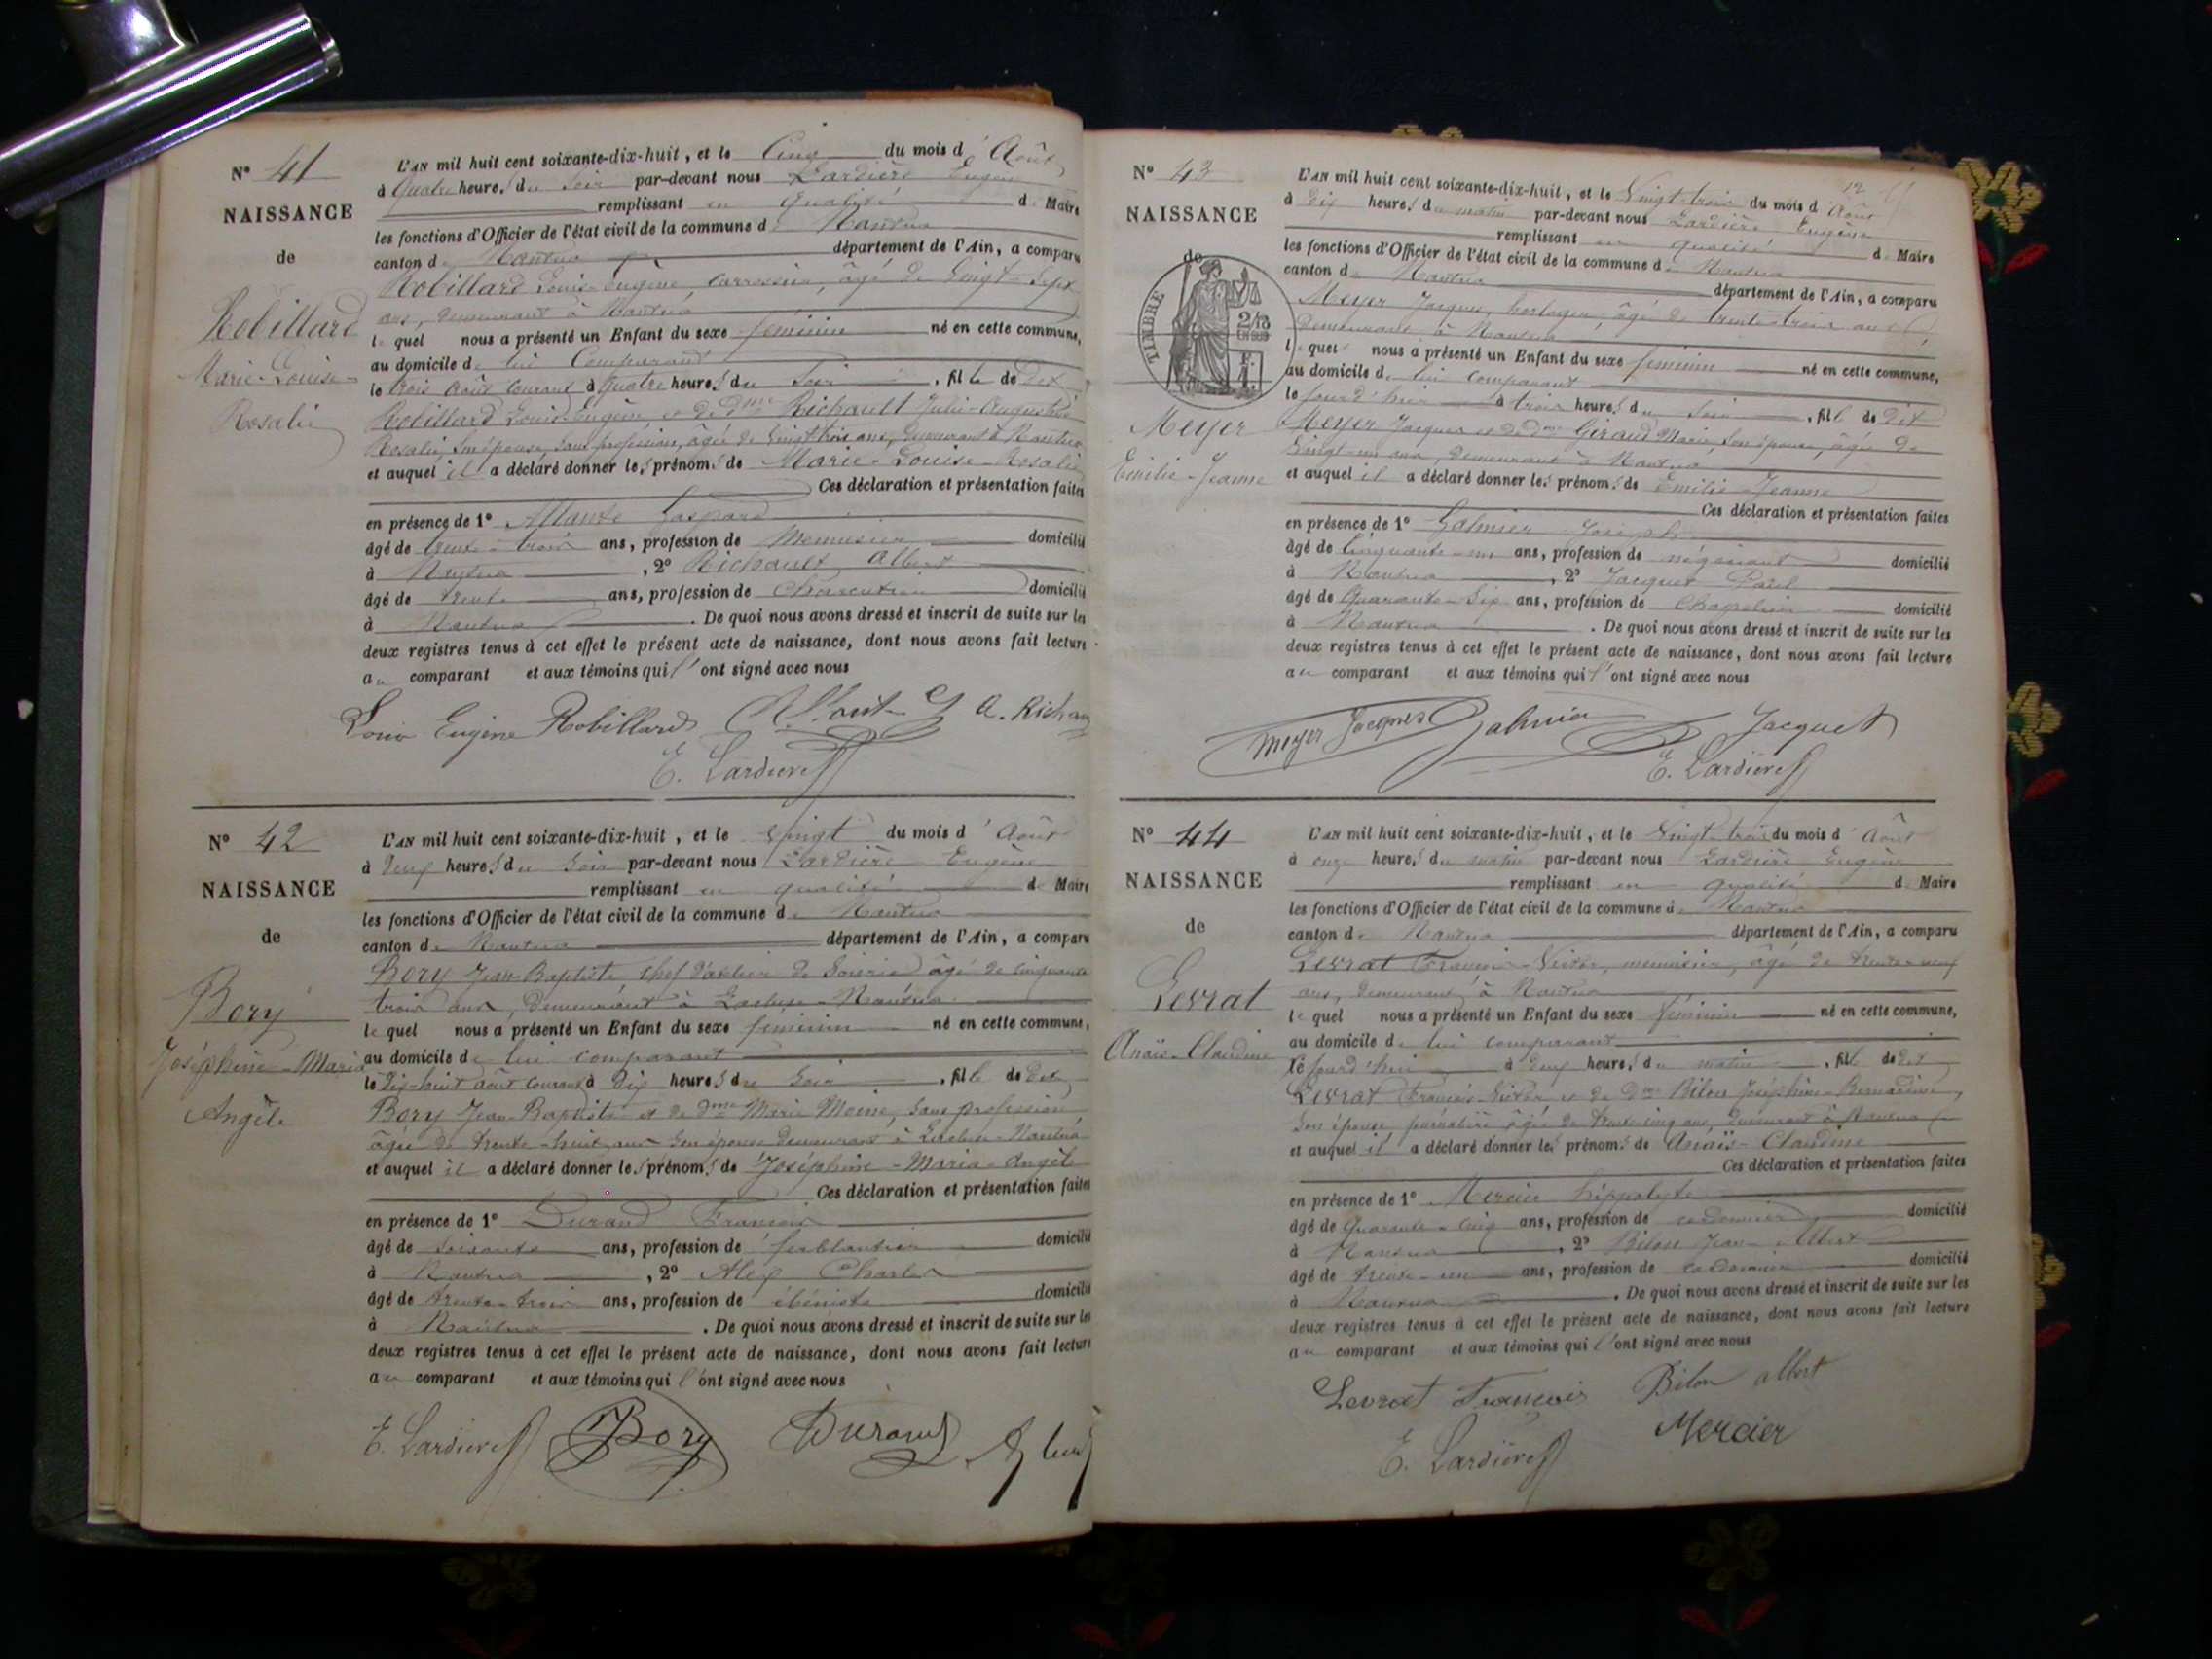 N° 41
NAISSANCE
de
Robillard
Marie-Louise-
Rosalie
L'AN mil huit cent soixante-dix-huit, et le Cinq du mois d'Août
à Quatre heures du Soir par-devant nous Lardière Eugène
remplissant en qualité de Maire
les fonctions d'Officier de l'état civil de la commune de Nantua
canton de Nantua département de l'Ain, a comparu
Robillard Louis-Eugène, carrossier, âgé de Vingt-Sept
ans, demeurant à Nantua
lequel nous a présenté un Enfant du sexe féminin né en cette commune,
au domicile de lui Comparant
le trois août courant à quatre heures du Soir, fille de Dit
Robillard Louis-Eugène et de dme Richault Julie-Augustine
Rosalie, son épouse, sans profession, âgée de vingt trois ans, demeurant à Nantua
et auquel il a déclaré donner les prénoms de Marie-Louise-Rosalie
Ces déclaration et présentation faites
en présence de 1° Allante Gaspard
âgé de trente-trois ans, profession de Menuisier domicilié
à Nantua, 2° Richault Albert
âgé de trente ans, profession de Charcutier domicilié
à Nantua. De quoi nous avons dressé et inscrit de suite sur les
deux registres tenus à cet effet le présent acte de naissance, dont nous avons fait lecture
au comparant et aux témoins qui l'ont signé avec nous
Louis Eugène Robillard A. Richau
E. Lardière
N° 42
NAISSANCE
de
Bory
Joséphine-Maria
Angèle
L'AN mil huit cent soixante-dix-huit, et le Vingt du mois d'Août
à deux heures du Soir par-devant nous Lardière Eugène
remplissant en qualité de Maire
les fonctions d'Officier de l'état civil de la commune de Nantua
canton de Nantua département de l'Ain, a comparu
Bory Jean-Baptiste, chef d'atelier de Soierie âgé de cinquante
trois ans, demeurant à Lacluse-Nantua
lequel nous a présenté un Enfant du sexe féminin né en cette commune,
au domicile de lui comparant
le Dix-huit août courant à Dix heures du Soir, fille de Dit
Bory Jean-Baptiste et de dme Marie Moine, sans profession
âgée de trente-huit ans son épouse demeurant à Lacluse-Nantua
et auquel il a déclaré donner les prénoms de Joséphine-Maria-Angèle
Ces déclaration et présentation faites
en présence de 1° Durand François
âgé de soixante ans, profession de ferblantier domicilié
à Nantua, 2° Aley Charles
âgé de trente-trois ans, profession de ébéniste domicilié
à Nantua. De quoi nous avons dressé et inscrit de suite sur les
deux registres tenus à cet effet le présent acte de naissance, dont nous avons fait lecture
au comparant et aux témoins qui l'ont signé avec nous
E. Lardière Bory Durand
12
N° 43
NAISSANCE
de
TIMBRE
Meyer
Emilie-Jeanne
L'AN mil huit cent soixante-dix-huit, et le Vingt-trois du mois d'Août
à dix heures du matin par-devant nous Lardière Eugène
remplissant en qualité de Maire
les fonctions d'Officier de l'état civil de la commune de Nantua
canton de Nantua département de l'Ain, a comparu
Meyer Jacques, horloger, âgé de trente-trois ans
demeurant à Nantua
lequel nous a présenté un Enfant du sexe féminin né en cette commune,
au domicile de lui comparant
le jour d'hier à trois heures du Soir, fille de Dit
Meyer Jacques et de dme Giraud Marie, son épouse, âgée de
Vingt-un ans, demeurant à Nantua
et auquel il a déclaré donner les prénoms de Emilie-Jeanne
Ces déclaration et présentation faites
en présence de 1° Galmier Joseph
âgé de Cinquante-un ans, profession de négociant domicilié
à Nantua, 2° Jacquet Paul
âgé de Quarante-six ans, profession de Chapelier domicilié
à Nantua. De quoi nous avons dressé et inscrit de suite sur les
deux registres tenus à cet effet le présent acte de naissance, dont nous avons fait lecture
au comparant et aux témoins qui l'ont signé avec nous
Meyer Jacques Galmier Jacquet
E. Lardière
N° 44
NAISSANCE
de
Levrat
Anaïs-Claudine
L'AN mil huit cent soixante-dix-huit, et le Vingt-trois du mois d'Août
à onze heures du matin par-devant nous Lardière Eugène
remplissant en qualité de Maire
les fonctions d'Officier de l'état civil de la commune de Nantua
canton de Nantua département de l'Ain, a comparu
Levrat François-Victor, menuisier, âgé de trente-neuf
ans, demeurant à Nantua
lequel nous a présenté un Enfant du sexe féminin né en cette commune,
au domicile de lui comparant
le jour d'hier à deux heures du matin, fille de Dit
Levrat François-Victor et de Dme Bilon Joséphine-Bernardine,
son épouse journalière âgée de trente-cinq ans, demeurant à Nantua
et auquel il a déclaré donner les prénoms de Anaïs-Claudine
Ces déclaration et présentation faites
en présence de 1° Mercier hippolyte
âgé de Quarante-cinq ans, profession de cordonnier domicilié
à Nantua, 2° Bilon Jean-Albert
âgé de trente-un ans, profession de cordonnier domicilié
à Nantua. De quoi nous avons dressé et inscrit de suite sur les
deux registres tenus à cet effet le présent acte de naissance, dont nous avons fait lecture
au comparant et aux témoins qui l'ont signé avec nous
Levrat François Bilon albert
E. Lardière Mercier